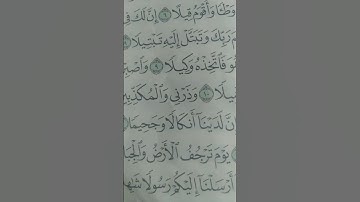 وَطْـًٔا وَأَقْوَمُ قِيلًا ٦ إِنَّ لَكَ فِي
مَ رَبِّكَ وَتَبَتَّلْ إِلَيْهِ تَبْتِيلًا
هُوَ فَٱتَّخِذْهُ وَكِيلًا ٩ وَٱصْبِرْ
يلًا ١٠ وَذَرْنِي وَٱلْمُكَذِّبِي
نَّ لَدَيْنَآ أَنكَالًا وَجَحِيمًا
يَوْمَ تَرْجُفُ ٱلْأَرْضُ وَٱلْجِبَا
أَرْسَلْنَآ إِلَيْكُمْ رَسُولًا شَٰهِ